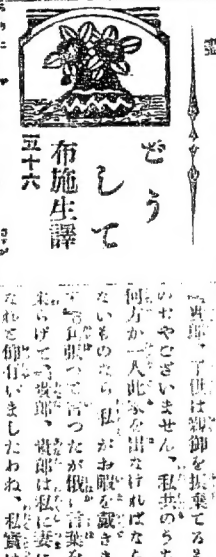 どう
して
布施生譯
五十六
貴郎、子供は親御を振棄てる
のぢやございません、私共のうち
何方か一人此家を出なければなら
ないものなら、私がお暇を戴き
角張つて言つたが俄に言葉を
柔らげて、貴郎、貴郎は私に妻に
なれと仰有いましたわね、私實